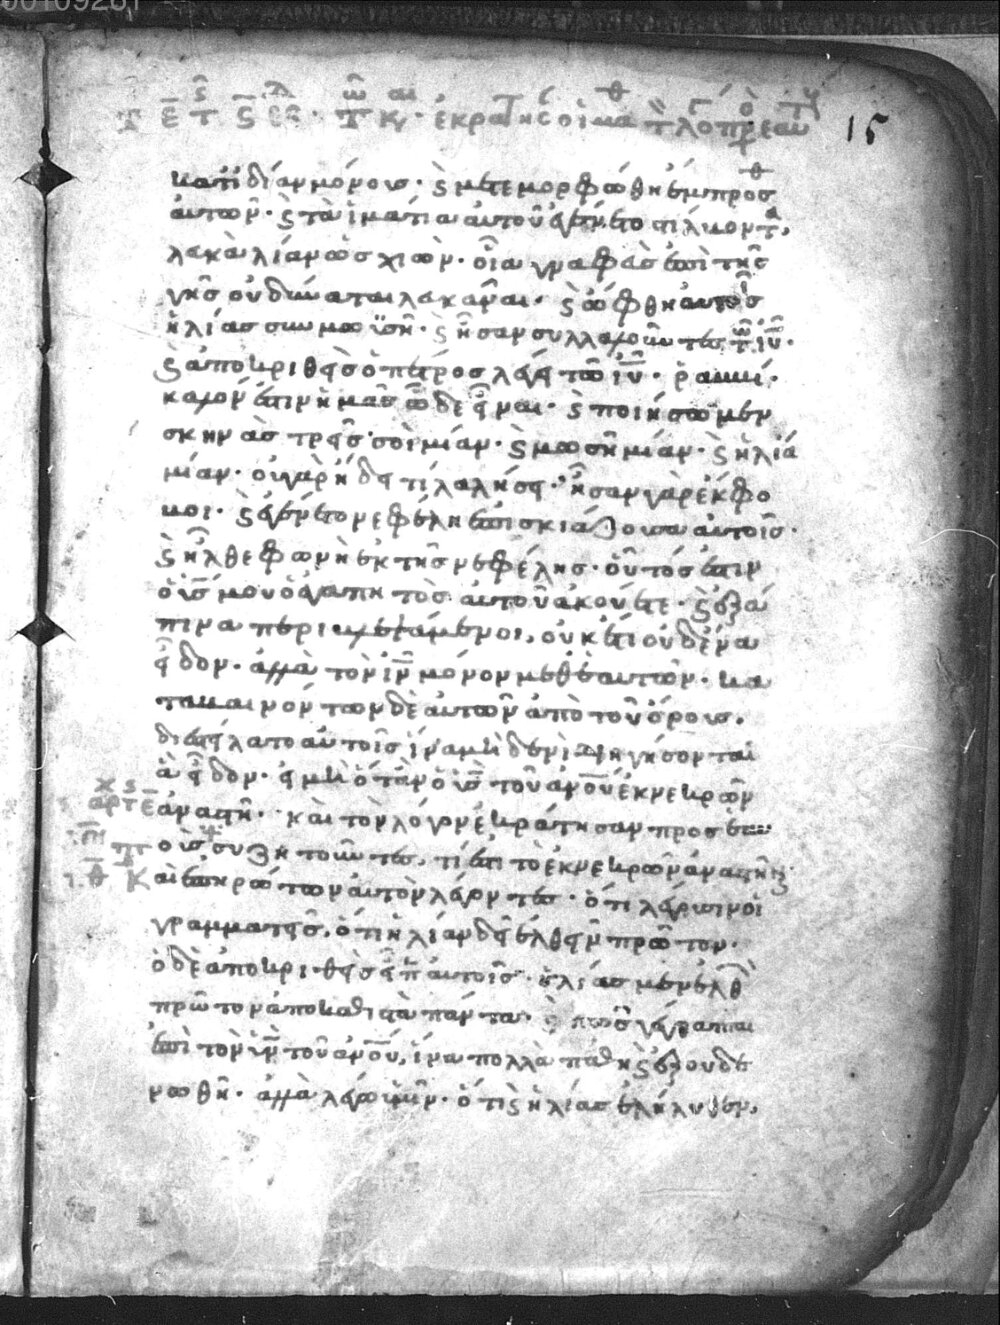 00109261
15
κατιδίαν μόνους· ϛ μετεμορφώθη ἔμπροσθ
αὐτῶν· ϛ τὰ ἱμάτια αὐτοῦ ἐγένετο στίλβοντα,
λευκὰ λίαν ὡς χιών· οἷα γναφεὺς ἐπὶ τῆς
γῆς οὐ δύναται λευκᾶναι· ϛ ὤφθη αὐτοῖς
ἠλίας σὺν μωϋσῆ· ϛ ἦσαν συλλαλοῦντες τῶ ἰῦ·
ϛ ἀποκριθεὶς ὁ πέτρος λέγει τῶ ἰῦ· ῥαββί·
καλόν ἐστιν ἡμᾶς ὧδε εἶναι· ϛ ποιήσωμεν
σκηνὰς τρεῖς· σοὶ μίαν· ϛ μωσῆ μίαν· ϛ ἠλία
μίαν· οὐ γὰρ ἤδει τί λαλήσει· ἦσαν γὰρ ἔκφο
βοι· ϛ ἐγένετο νεφέλη ἐπισκιάζουσα αὐτοῖς·
ϛ ἦλθε φωνὴ ἐκ τῆς νεφέλης· οὗτός ἐστιν
ὁ υἱς μου ὁ ἀγαπητὸς αὐτοῦ ἀκούετε· ϛ ἐξά
πινα περιβλεψάμενοι, οὐκέτι οὐδένα
εἶδον· ἀλλὰ τὸν ἰν μόνον μεθ ἑαυτῶν· κα
ταβαινόντων δὲ αὐτῶν ἀπὸ τοῦ ὄρους,
διεστείλατο αὐτοῖς ἵνα μηδενὶ διηγήσονται
ἃ εἶδον· εἰ μὴ ὅταν ὁ υἱς τοῦ ἀνου ἐκ νεκρῶν
ἀναστῆ· καὶ τὸν λόγον ἐκράτησαν πρὸς ἑαυ
τοὺς συζητοῦντες, τί ἐστι τὸ ἐκ νεκρῶν ἀναστῆν
Καὶ ἐπηρώτων αὐτὸν λέγοντες· ὅτι λέγουσιν οἱ
γραμματεῖς, ὅτι ἠλίαν δεῖ ἐλθεῖν πρῶτον·
ὁ δὲ ἀποκριθεὶς εἶπ αὐτοῖς· ἠλίας μὲν ἐλθ
πρῶτον ἀποκαθιστᾶ πάντα· ϛ πῶς γέγραπται
ἐπὶ τὸν υἱν τοῦ ἀνου, ἵνα πολλὰ πάθη ϛ ἐξουδε
νωθῆ· ἀλλὰ λέγω ὑμῖν· ὅτι ϛ ἠλίας ἐλήλυθεν,